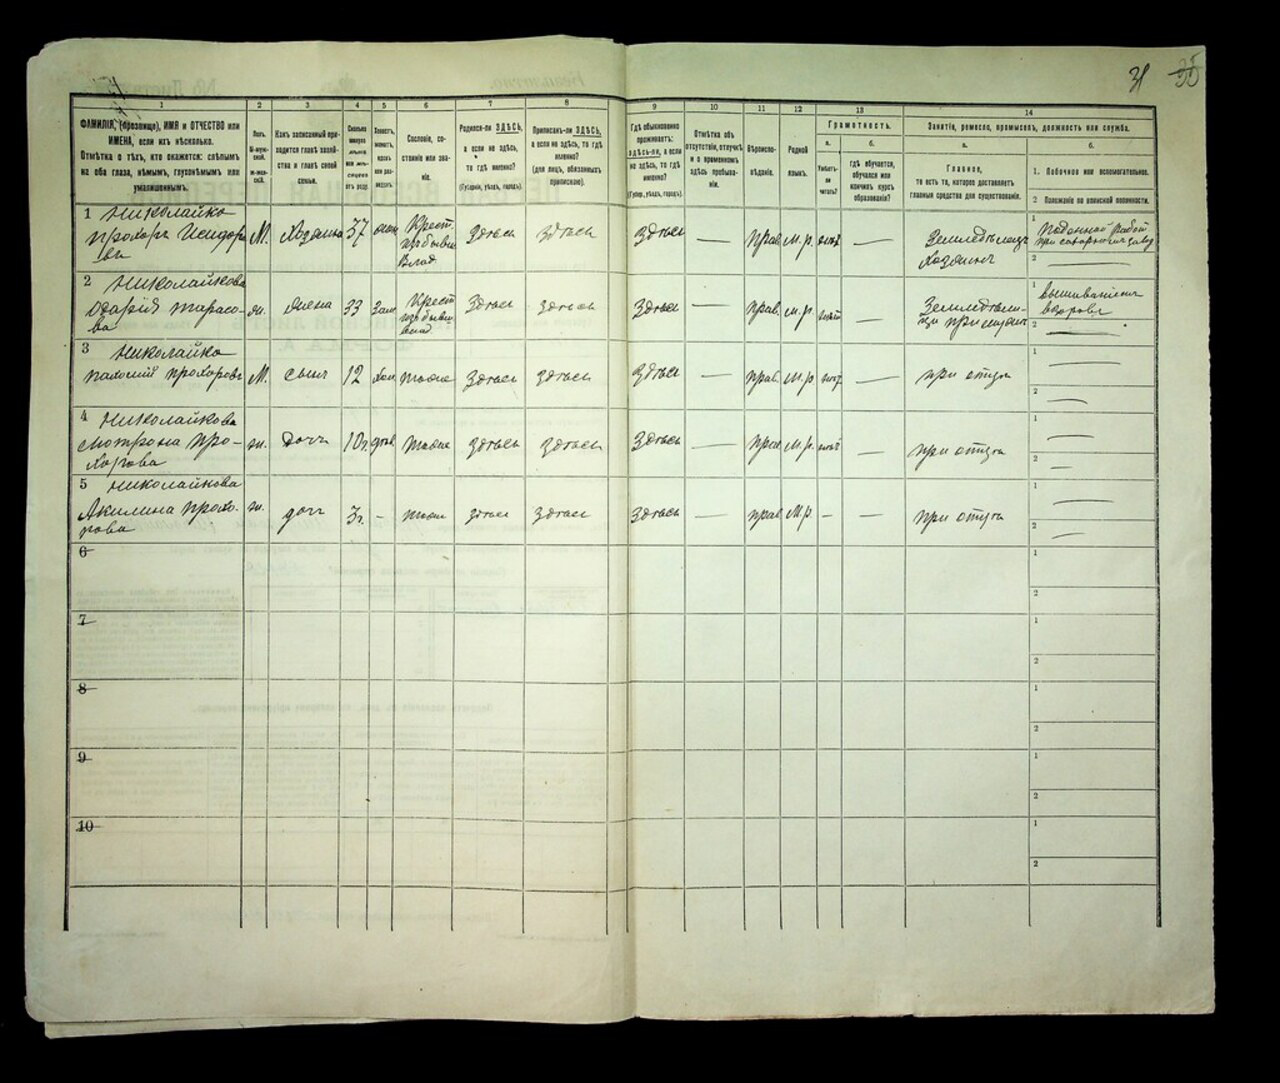 31 35
1 2 3 4 5 6 7 8 9 10 11 12 13 14
ФАМИЛІЯ, (прозвище), ИМЯ и ОТЧЕСТВО или
ИМЕНА, если ихъ нѣсколько.
Отмѣтка о тѣхъ, кто окажется: слѣпымъ
на оба глаза, нѣмымъ, глухонѣмымъ или
умалишеннымъ.
Полъ.
М-мужской.
Ж-женскій.
Какъ записанный приходится главѣ хозяйства и главѣ своей
семьи.
Сколько
минуло
лѣтъ
или мѣсяцевъ
отъ роду
Холостъ,
женатъ,
вдовъ
или разведенъ.
Сословіе, состояніе или званіе.
Родился-ли ЗДѢСЬ,
а если не здѣсь,
то гдѣ именно?
(Губернія, уѣздъ, городъ).
Приписанъ-ли ЗДѢСЬ,
а если не здѣсь, то гдѣ
именно?
(для лицъ, обязанныхъ
припискою).
Гдѣ обыкновенно
проживаетъ:
здѣсь-ли, а если
не здѣсь, то гдѣ
именно?
(Губер., уѣздъ, городъ).
Отмѣтка объ
отсутствіи, отлучкѣ
и о временномъ
здѣсь пребываніи.
Вѣроисповѣданіе.
Родной
языкъ.
Грамотность.
а. б.
Умѣетъ-
ли
читать?
гдѣ обучается,
обучался или
кончилъ курсъ
образованія?
Занятіе, ремесло, промыселъ, должность или служба.
а. б.
Главное,
то есть то, которое доставляетъ
главныя средства для существованія.
1. Побочное или вспомогательное.
2 Положеніе по воинской повинности.
1 Николайко
Прохоръ Исидоровъ
М. Хозяинъ 37 Крест. изъ бывш. Влад. Здѣсь Здѣсь Здѣсь — Прав. М. р. —
Земледѣлецъ
Хозяинъ
1
2 —
2 Николайкова
Дарія Тарасова
ж. Жена 33 Зам. Крест. изъ бывш. Здѣсь Здѣсь Здѣсь — Прав. М. р. —
1
2 —
3 Николайко
Прохоровъ
М. сынъ 12 Хол. Тоже Здѣсь Здѣсь Здѣсь — прав. М. р —
при отцѣ
1 —
2 —
4 Николайкова
Мотрона Прохорова
ж. Дочь 10г. дѣв. Тоже Здѣсь Здѣсь Здѣсь — прав М. р. —
при отцѣ
1 —
2 —
5 Николайкова
Акилина Прохорова
ж. дочь 3г. – тоже здѣсь Здѣсь Здѣсь — прав М. р – —
при отцѣ
1 —
2 —
6 1
2
7 1
2
8 1
2
9 1
2
10 1
2